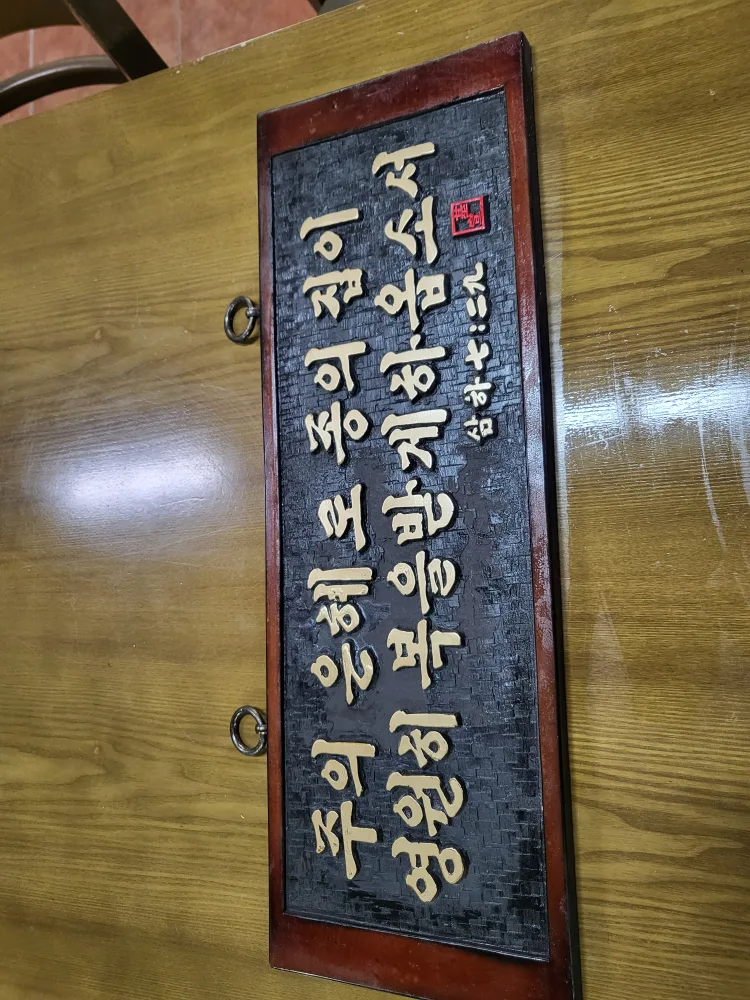 주의 은혜로 종의 집이
영원히 복을 받게 하옵소서
삼하 七:二九